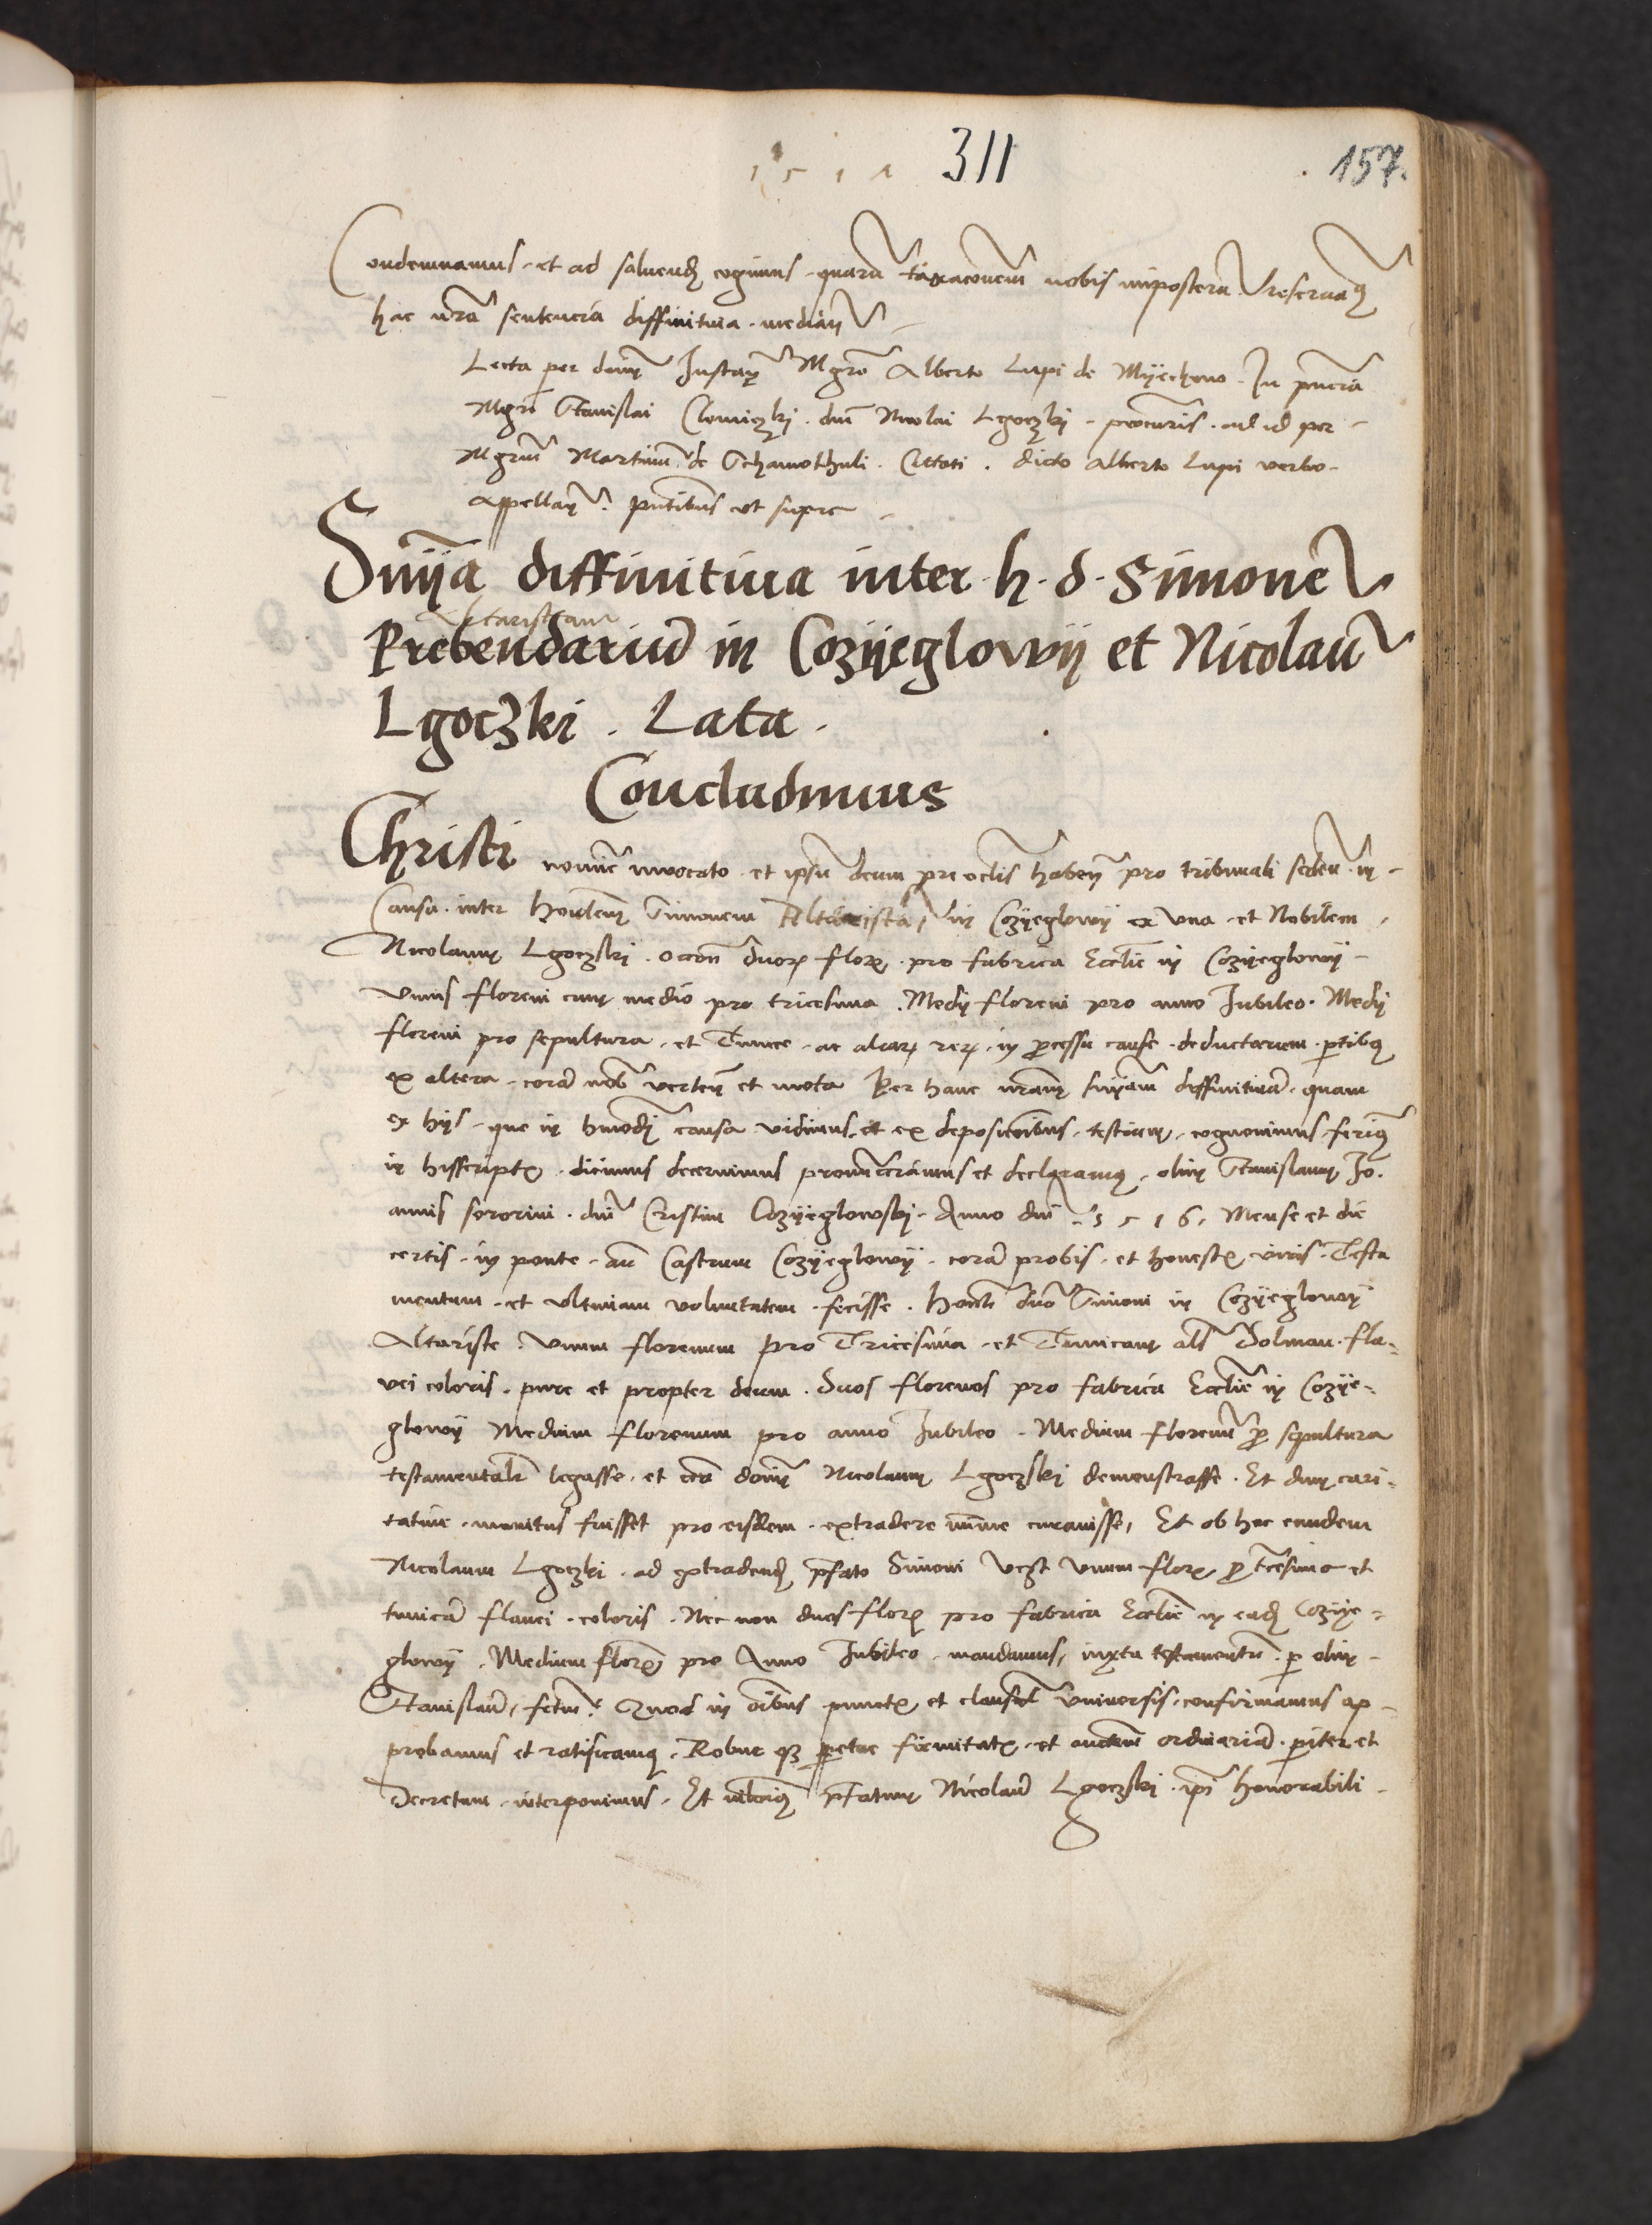 1511 311 157.
Condemnamus et ad solvend cogimus quarū taxacōnem nobis imposterū reservamꝰ
hac nrā sentencia diffinitiva median
Lecta per dnm Instan Mgrō Alberto Lupi de Myechow In pnciā
Mgri Stanislai Clomiczki dni Nicolai Lgoczki procuris ad id per
Mgrum Martinum de Schamothuli Cittati dicto Alberto Lupi verbo
Appellan pntibus ut supra
Snȳa diffinitiva inter h. d. Simonē
Altaristam
Prebendariū in Cozyeglowy et Nicolaū
Lgoczki . Lata .
Concludimus
Christi nomine invocato et ipsū deum pre oclis haben pro tribunali seden in
Causa inter Honlem Simonem Altaristā in Cozyeglowy ex una et Nobilem
Nicolaum Lgoczski occōn duorꝫ florꝫ pro fabrica Ecclie in Cozyeglowy
Unius floreni cum medio pro tricesima . Medy floreni pro anno Jubileo . Medy
floreni pro sepultura et Tunice ac aliarꝫ rerꝫ in processu cause deductarum ptibꝰ
ex altera corā nob verten et mota Per hanc nram snyam diffinitivā quam
ex hys que in hmodi causa vidimus et ex depositōibus testium cognovimus ferimꝰ
in hisscriptꝫ dicimus decernimus pronuncciamus et declaramꝰ olim Stanislaum Jo.
annis sororini dni Cristini Cozyeglowski Anno dni 1516 Mense et die
certis in ponte an Castrum Cozyeglowy corā probis et honestꝫ viris Testa
mentum et ultimam voluntatem fecisse . Honli dno Simoni in Cozyeglowy
Altariste Unum florenum pro Tricesima et Tunicam als Dolman fla-
vei coloris pure et propter deum . Duos florenos pro fabrica Ecclie in Cozye-
glowy Medium florenum pro anno Jubileo . Medium florenū p sepultura
testamentalr legasse et cōrā dnm Nicolaum Lgoczski demonstrasse . Et dum cari-
tative monitus fuisset pro eisdem extradere mīme curavisse, Et ob hoc eundem
Nicolaum Lgoczki ad extradend pfato Simoni Unum florꝫ p tricesima et
tunicā flavei coloris . Nec non duos florꝫ pro fabrica Ecclie in ead Cozye-
glowy . Medium florꝫ pro Anno Jubileo mandamus, iuxta testamentū p olim
Stanislaū fctm . Quod in oībus punctꝫ et clauslis universis confirmamus ap-
probamus et ratificamꝰ . Robur qꝫ ppetue firmitatꝫ et auctem ordinariā pariter et
Decretum interponimus . Et pfatum Nicolaū Lgoczski ipi honorabili